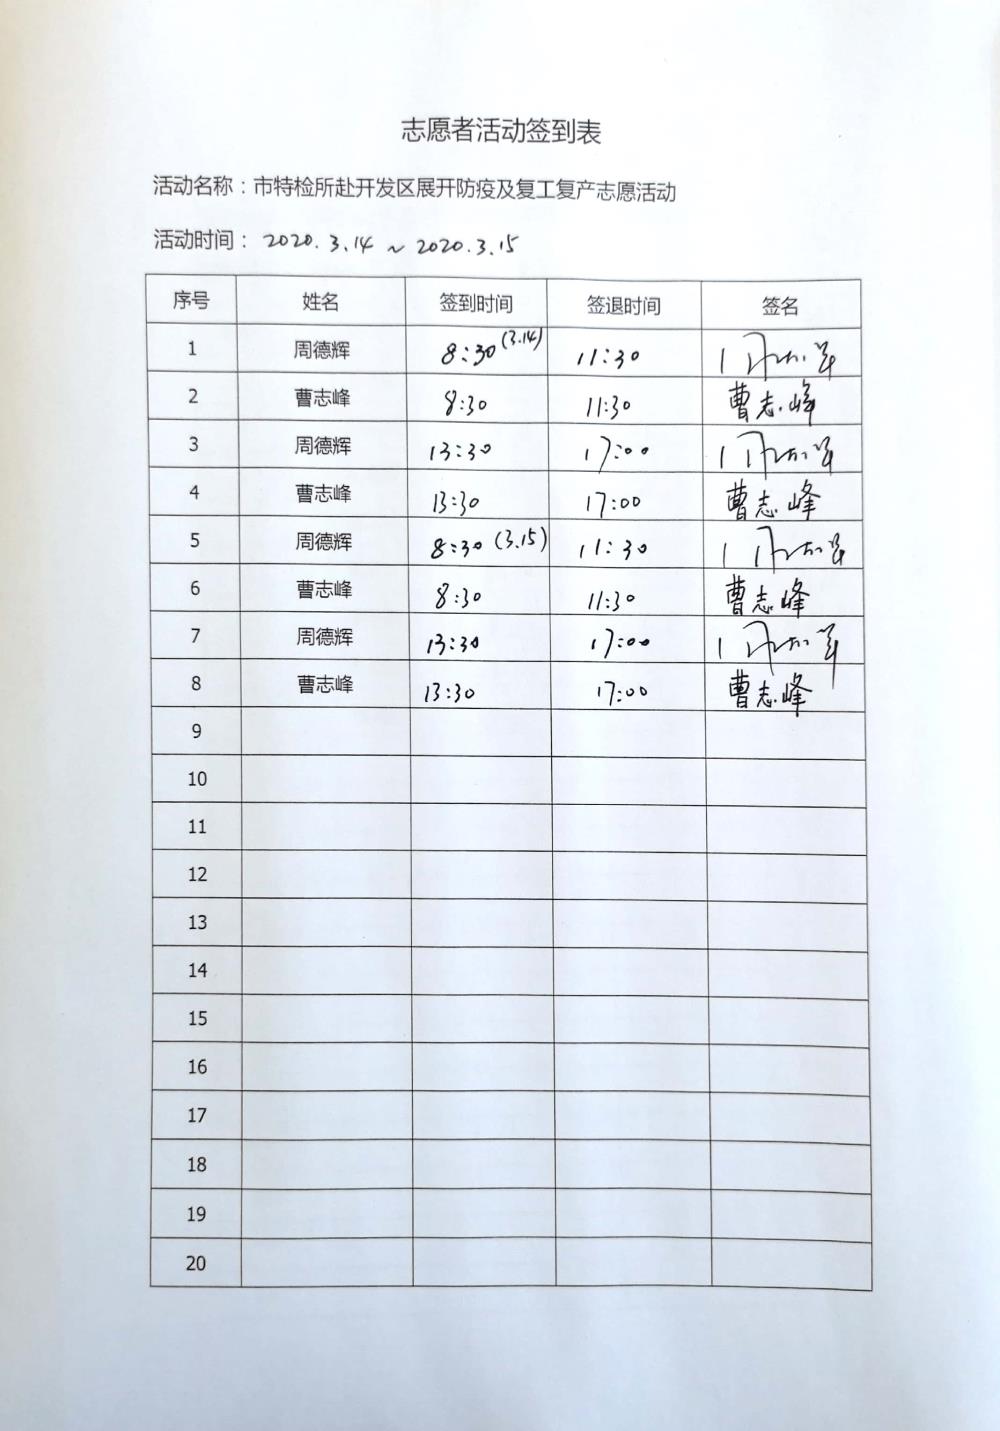 志愿者活动签到表
活动名称：市特检所赴开发区展开防疫及复工复产志愿活动
活动时间：2020.3.14 ~ 2020.3.15
序号 姓名 签到时间 签退时间 签名
1 周德辉 8:30(3.14) 11:30
2 曹志峰 8:30 11:30 曹志峰
3 周德辉 13:30 17:00
4 曹志峰 13:30 17:00 曹志峰
5 周德辉 8:30(3.15) 11:30
6 曹志峰 8:30 11:30 曹志峰
7 周德辉 13:30 17:00
8 曹志峰 13:30 17:00 曹志峰
9
10
11
12
13
14
15
16
17
18
19
20